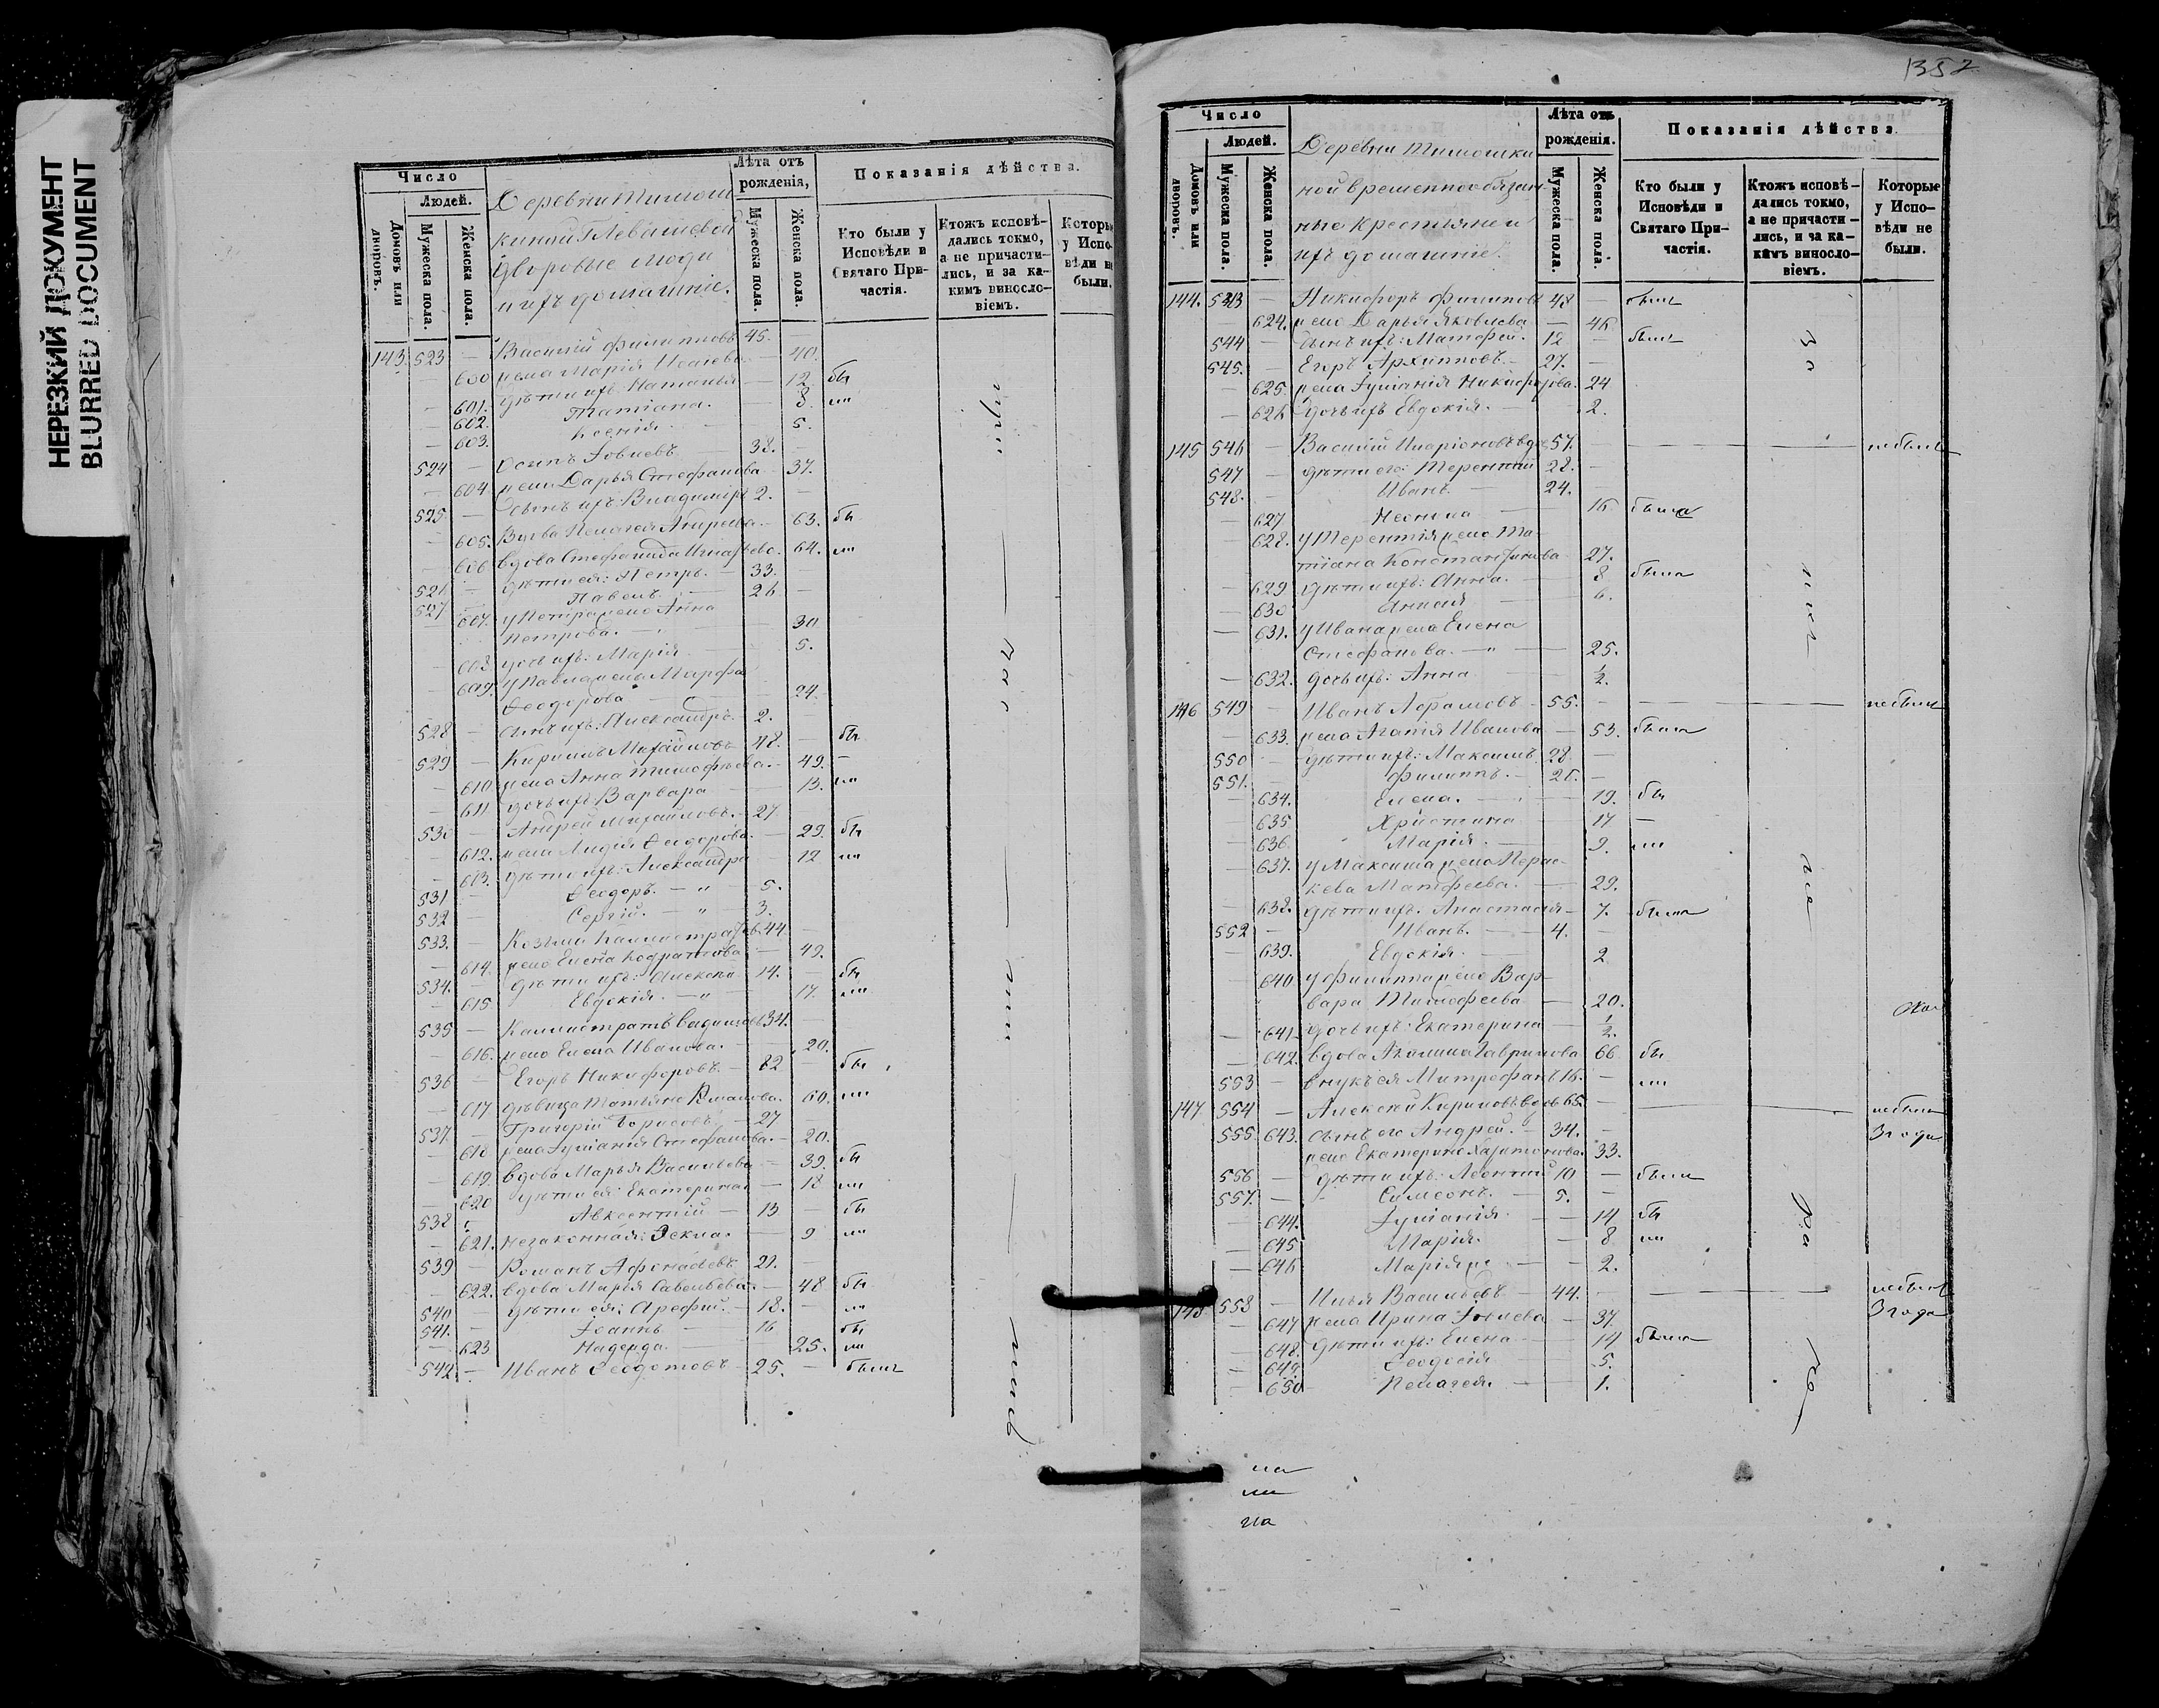 НЕРЕЗКИЙ ДОКУМЕНТ
BLURRED DOCUMENT
Число
Людей.
Домовъ или дворовъ.
Мужеска пола.
Женска пола.
Деревни Тимош
киной Г Левашевой
дворовые люди
и ихъ домашніе.
Лѣта отъ рожденія,
Мужеска пола.
Женска пола.
Показанія дѣйства.
Кто были у Исповѣди и Святаго Причастія.
Ктожъ исповѣдались токмо, а не причастились, и за какимъ винословіемъ.
Которые у Исповѣди не были.
143. 523 — Василій Филипповъ 45. —
— 600 жена Марія Исаева — 40.
— 601. дѣти ихъ: Наталья — 12. бы
— 602. Татіана. — 8. ли
— 603. Ксенія. — 5.
524 — Осипъ Іовлевъ 38. —
— 604 жена Дарья Стефанова — 37.
525. — сынъ ихъ: Владиміръ 2. —
— 605. Вдова Пелагея Андреева. — 63. бы
— 606 вдова Стефанида Игнатьева. 64. ли
526 — дѣти ея: Петръ. — 33. —
527 — Павелъ — 26 —
— 607. у Петра жена Анна
Петрова. — 30
— 608 дочь ихъ: Марія — 5.
— 609. у Павла жена Марфа
Ѳеодорова — 24.
528 — сынъ ихъ: Александръ. 2.
529 — Кириллъ Михайловъ 48. — бы
— 610 жена Анна Тимофѣева. — 49. —
— 611 дочь ихъ: Варвара — 13. ли
530 — Андрей Михайловъ. — 27
— 612. жена Лидія Ѳеодорова. — 29. бы
— 613. дѣти ихъ: Александра — 12 ли
531 — Ѳеодоръ. — " — 5.
532 — Сергій. — " — 3.
533. — Козьма Каллистратовъ 44. —
— 614. жена Елена Кодратова — 49.
534. — дѣти ихъ: Алексѣй 14. — бы
— 615 Евдокія. — " — 17. ли
535 — Каллистратъ 34. —
— 616. жена Елена Иванова. — 20.
536 — Егоръ Никифоровъ. — 82 — бы
— 617 дѣвица Татьяна Романова. 60. ли
537. — Григорій Борисовъ. — 27
— 618 жена Іуліанія Стефанова. — 20.
— 619. вдова Марья Васильева — 39. бы
— 620 дѣти ея: Екатерина — 18 ли
538 Авксентій — 13 — бы
— 621. незаконная: Ѳекла. — 9 ли
539 — Романъ Афонасьевъ 21. —
— 622. вдова Марія Савельева. — 48 бы
540 — дѣти ея: Арефій. — 18. — ли
541. — Іоаннъ — 16 бы
— 623 Надежда. — 25. ли
542. — Иванъ Ѳеодотовъ — 25. — былъ
1352
Число
Людей.
Домовъ или дворовъ.
Мужеска пола.
Женска пола.
Деревни Тимошки
ной временнообязан-
ные крестьяне и
ихъ домашніе.
Лѣта отъ рожденія.
Мужеска пола.
Женска пола.
Показанія дѣйства.
Кто были у Исповѣди и Святаго Причастія.
Ктожъ исповѣдались токмо, а не причастились, и за какимъ винословіемъ.
Которые у Исповѣди не были.
144. 543 — Никифоръ Филиповъ 48 — былъ
— 624. жена Дарья Яковлева — 46
544 — сынъ ихъ: Матфей. 12 — былъ
545. — Егоръ Архиповъ. — 27. —
— 625. жена Іуліанія Никифорова. 24
— 626 дочь ихъ Евдокія. — 2.
145 546 — Василій Иларіоновъ вдов 57. — небылъ
547 — дѣти его: Терентій 28. —
548. — Иванъ. — 24. —
— 627 Неонила — 16 была
— 628. у Терентія жена Та-
тіана Константинова 27.
— 629 дѣти ихъ: Анна. — 8 была
— 630 — 6.
— 631. у Ивана жена Елена
Стефанова. — " — 25.
— 632. дочь ихъ: Анна — 1/2.
146 549 — Иванъ 55. — небылъ
— 633. жена Агапія Иванова — 53. была
550 — дѣти ихъ: Максимъ 28 —
551. — Филиппъ. — 25. —
— 634. Елена. — 19. бы
— 635 Христина — 17 —
— 636 Марія. — 9. ли
— 637. у Максима жена Парас-
кева Матфеева. — 29.
— 638. дѣти ихъ: Анастасія — 7. была
552 — Иванъ. — 4. —
— 639. Евдокія. — 2
— 640 у Филиппа жена Вар-
вара Тимофеева — 20.
— 641 дочь ихъ: Екатерина — 1/2.
— 642. вдова Акилина Гаврилова 66 бы
553 — внукъ ея Митрофанъ 16. — ли
147 554 — Алексѣй Кириловъ вдов 65. — небылъ
555 643. сынъ его Андрей. " 34. — 3 года
жена Екатерина Харитонова. 33.
556 — дѣти ихъ: Леонтій 10 — былъ
557. — Симеонъ. — 5. —
— 644. Іуліанія. — 14 бы
— 645 Марія. — 8 ли
— 646 — 2.
148 558 — Илья Васильевъ — 44. — небылъ
— 647 жена Ирина Іовлева — 37. 3 года
— 648. дѣти ихъ: Елена — 14 была
— 649. Ѳеодосія — 5.
— 650 Пелагея. — 1.